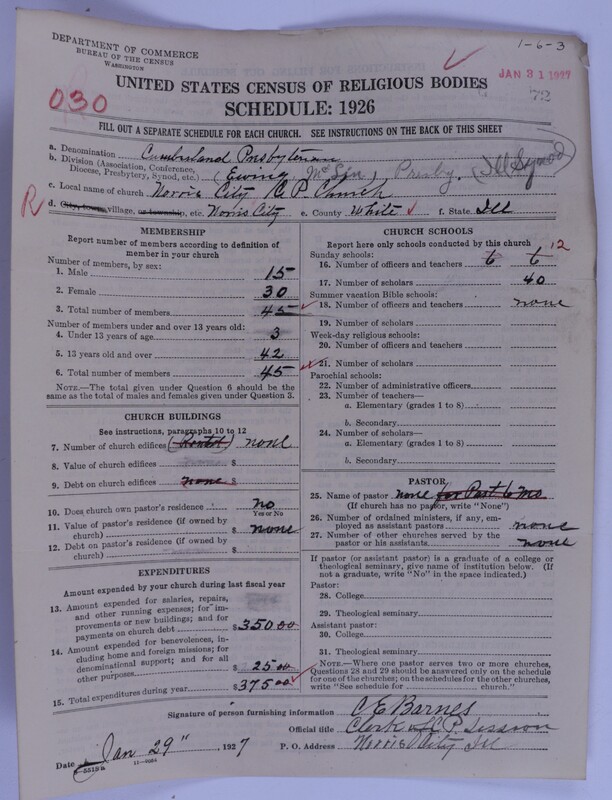 DEPARTMENT OF COMMERCE
BUREAU OF THE CENSUS
WASHINGTON
1-6-3
JAN 31 1927
72
030
UNITED STATES CENSUS OF RELIGIOUS BODIES
SCHEDULE: 1926
FILL OUT A SEPARATE SCHEDULE FOR EACH CHURCH. SEE INSTRUCTIONS ON THE BACK OF THIS SHEET
a. Denomination Cumberland Presbyterian
b. Division (Association, Conference, Diocese, Presbytery, Synod, etc.) (Ewing McSin) Presby. (Ill Synod)
c. Local name of church Norris City C P. Church
R
d. City, town, village, or township, etc. Norris City e. County White f. State Ill
MEMBERSHIP
Report number of members according to definition of member in your church
Number of members, by sex:
1. Male 15
2. Female 30
3. Total number of members 45
Number of members under and over 13 years old:
4. Under 13 years of age 3
5. 13 years old and over 42
6. Total number of members 45
NOTE.—The total given under Question 6 should be the same as the total of males and females given under Question 3.
CHURCH BUILDINGS
See instructions, paragraphs 10 to 12
7. Number of church edifices (Rented) none
8. Value of church edifices $
9. Debt on church edifices none $
10. Does church own pastor's residence no
Yes or No
11. Value of pastor's residence (if owned by church) $ none
12. Debt on pastor's residence (if owned by church) $
EXPENDITURES
Amount expended by your church during last fiscal year
13. Amount expended for salaries, repairs, and other running expenses; for improvements or new buildings; and for payments on church debt $350.00
14. Amount expended for benevolences, including home and foreign missions; for denominational support; and for all other purposes $ 25.00
15. Total expenditures during year $375.00
CHURCH SCHOOLS
Report here only schools conducted by this church
Sunday schools:
16. Number of officers and teachers 6 6 12
17. Number of scholars 40
Summer vacation Bible schools:
18. Number of officers and teachers none
19. Number of scholars
Week-day religious schools:
20. Number of officers and teachers
21. Number of scholars
Parochial schools:
22. Number of administrative officers
23. Number of teachers—
a. Elementary (grades 1 to 8)
b. Secondary
24. Number of scholars—
a. Elementary (grades 1 to 8)
b. Secondary
PASTOR
25. Name of pastor none for Past 6 mo
(If church has no pastor, write "None")
26. Number of ordained ministers, if any, employed as assistant pastors none
27. Number of other churches served by the pastor or his assistants none
If pastor (or assistant pastor) is a graduate of a college or theological seminary, give name of institution below. (If not a graduate, write "No" in the space indicated.)
Pastor:
28. College
29. Theological seminary
Assistant pastor:
30. College
31. Theological seminary
NOTE.—Where one pastor serves two or more churches, Questions 28 and 29 should be answered only on the schedule for one of the churches; on the schedules for the other churches, write "See schedule for church."
Signature of person furnishing information C E Barnes
Official title Clerk C P. Session
Date Jan 29", 1927 P. O. Address Norris City Ill
11-9034